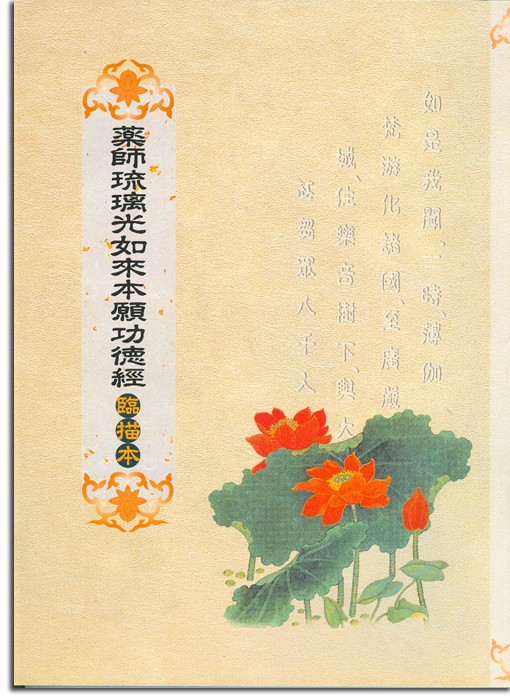 如是我聞、一時、薄伽
梵游化諸國、至廣嚴
城、住樂音樹下、與大
苾芻眾八千人
薬師琉璃光如來本願功德經
臨描本